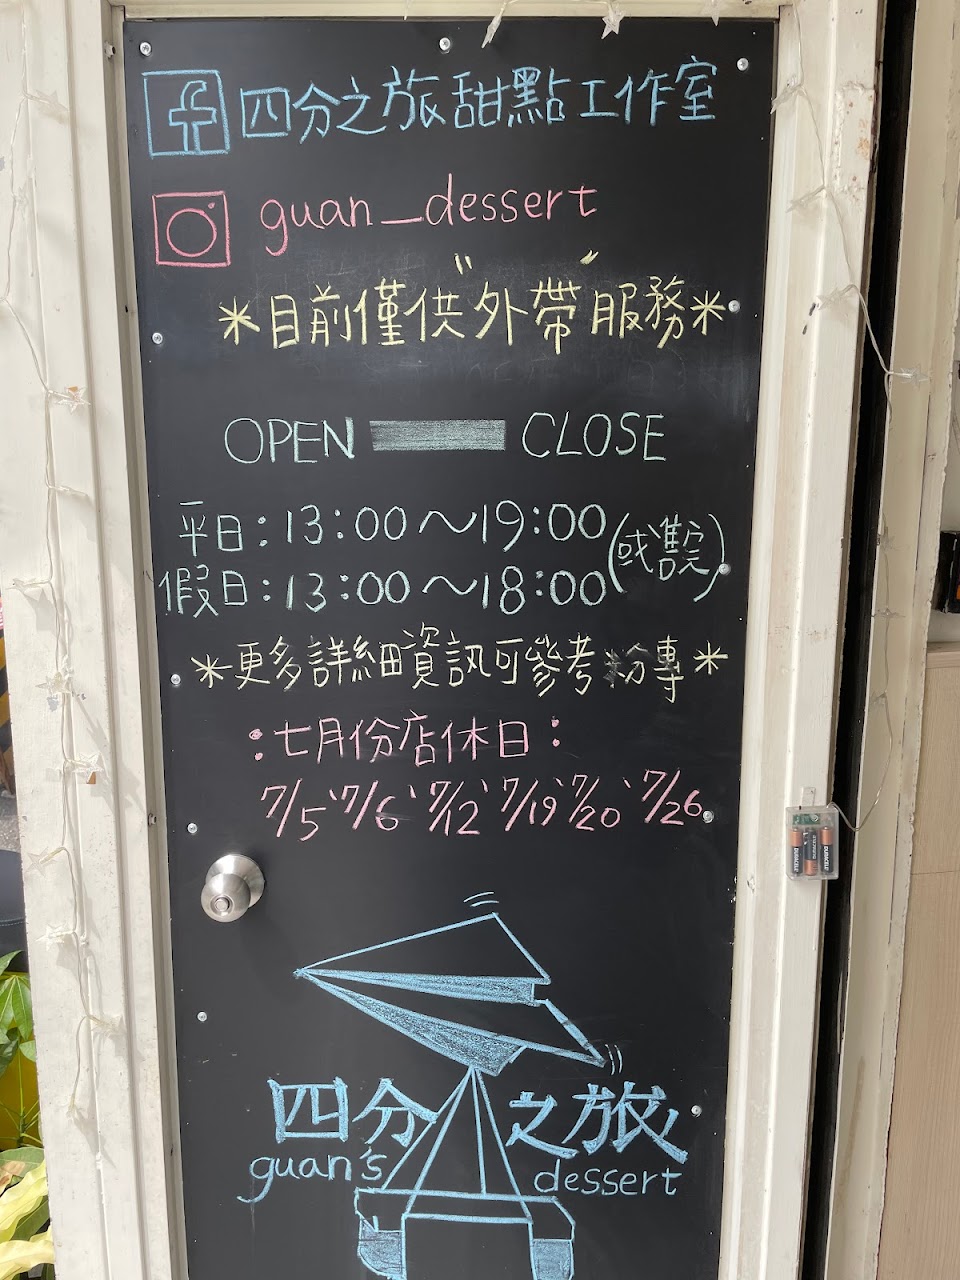 四分之旅甜點工作室
guan_dessert
*目前僅供"外帶"服務*
OPEN CLOSE
平日:13:00~19:00
(或售完)
假日:13:00~18:00
*更多詳細資訊可參考粉專*
:七月份店休日:
7/5、7/6、7/12、7/19、7/20、7/26
四分之旅
guan's dessert